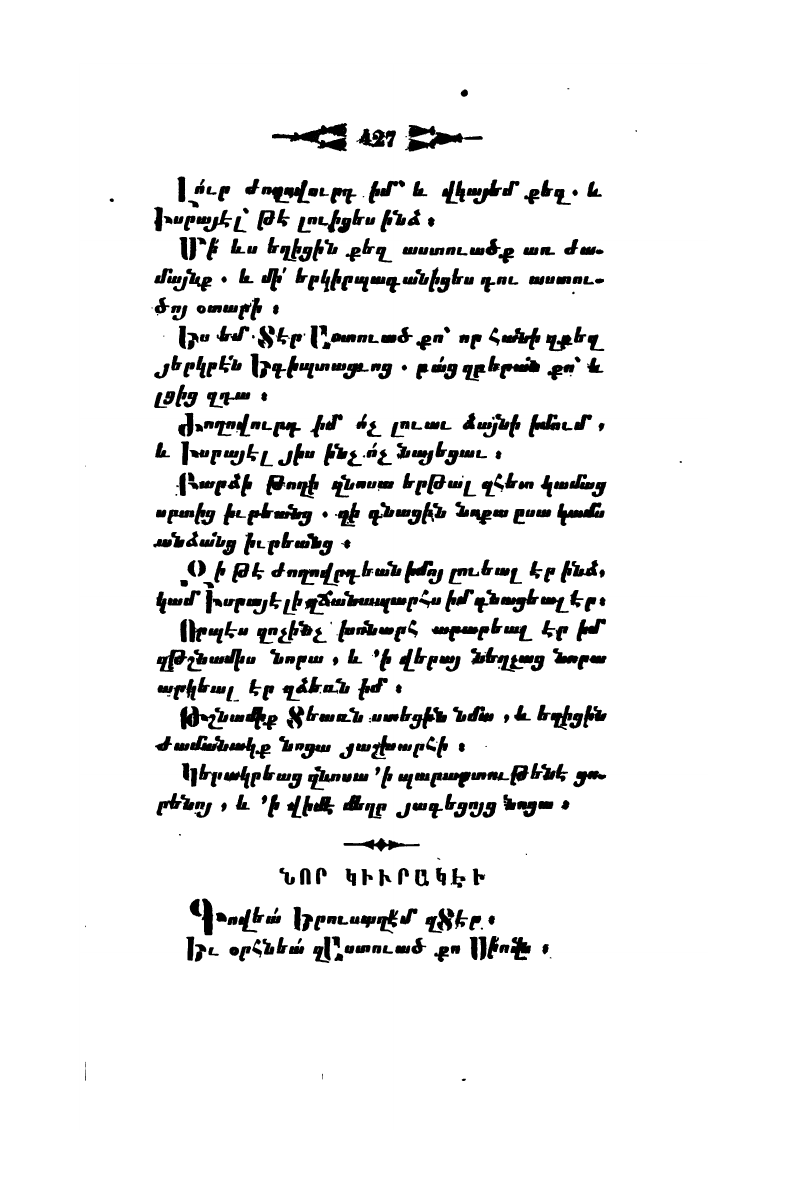 427
Լո՛ւր ժողովուրդ իմ՝ և վկայեմ քեզ. և
Իսրայէլ՝ թէ լուիցես ինձ։
Մի՛ ևս եղիցին քեզ աստուածք առ ժա-
մայնք. և մի՛ երկիրպագանիցես դու աստու-
ծոյ օտարի։
Ես եմ Տէր Աստուած քո՝ որ հանի զքեզ
յերկրէն Եգիպտացւոց. բա՛ց զբերան քո՝ և
լցից զդա։
Ժողովուրդ իմ ո՛չ լուաւ ձայնի իմում,
և Իսրայէլ յիս ինչ ո՛չ նայեցաւ։
Բարձի թողի զնոսա երթալ զհետ կամաց
սրտից իւրեանց. զի գնացին նոքա ըստ կամս
անձանց իւրեանց։
Զի թէ ժողովրդեան իմոյ լուեալ էր ինձ,
կամ Իսրայէլի զճանապարհս իմ գնացեալ էր։
Որպէս զոչինչ խոնարհ արարեալ էր իմ
զթշնամիս նորա, և ՚ի վերայ նեղչաց նորա
արկեալ էր զձեռն իմ։
Թշնամիք Տեառն ստեցին նմա, և եղիցին
ժամանակք նոցա յաշխարհի։
Կերակրեաց զնոսա ՚ի պարարտութենէ ցո-
րենոյ, և ՚ի վիմէ մեղր յագեցոյց նոցա։
ՆՈՐ ԿԻՒՐԱԿԷԻ
Գովեա՛ Երուսաղէմ զՏէր։
Եւ օրհնեա՛ զԱստուած քո Սիովն։